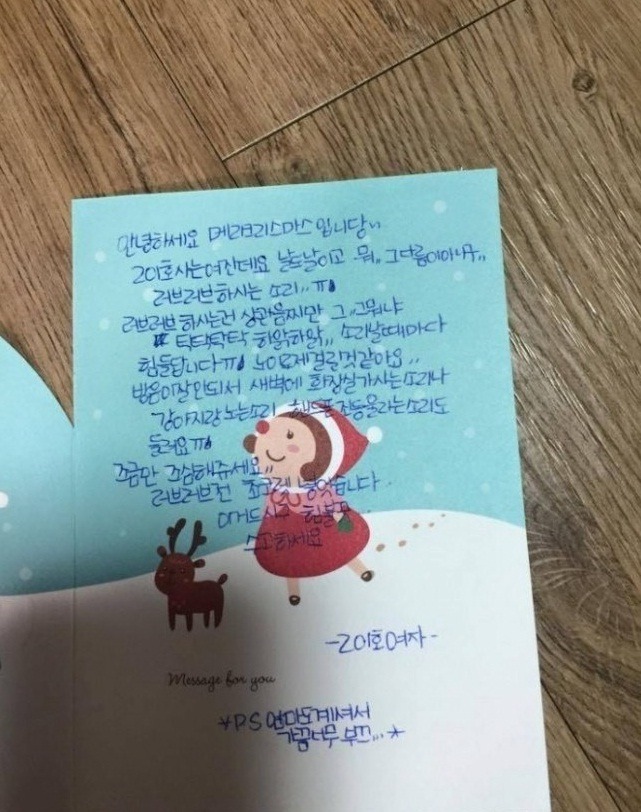 안녕하세요 메리크리스마스 입니당..
201호 사는여잔데요 날도날이고 뭐.. 그다름이아니구..
러브러브 하시는 소리..ㅠ
러브러브 하시는건 상관음찌만 그..그뭐냐
탁탁탁탁 하앍하앍.. 소리날때마다
힘들답니다ㅠ 노이로제걸릴것같아요..
방음이잘안되서 새벽에 화장실가시는소리나
강아지랑노는소리 핸드폰진동울리는소리도
들려요ㅠ
조금만 조심해쥬세요..
러브러브젤 넣었습니다
이거드시구 힘
하세요
-201호여자-
Message for you
*P.S 엄마도계셔서
가끔너무 부끄...*